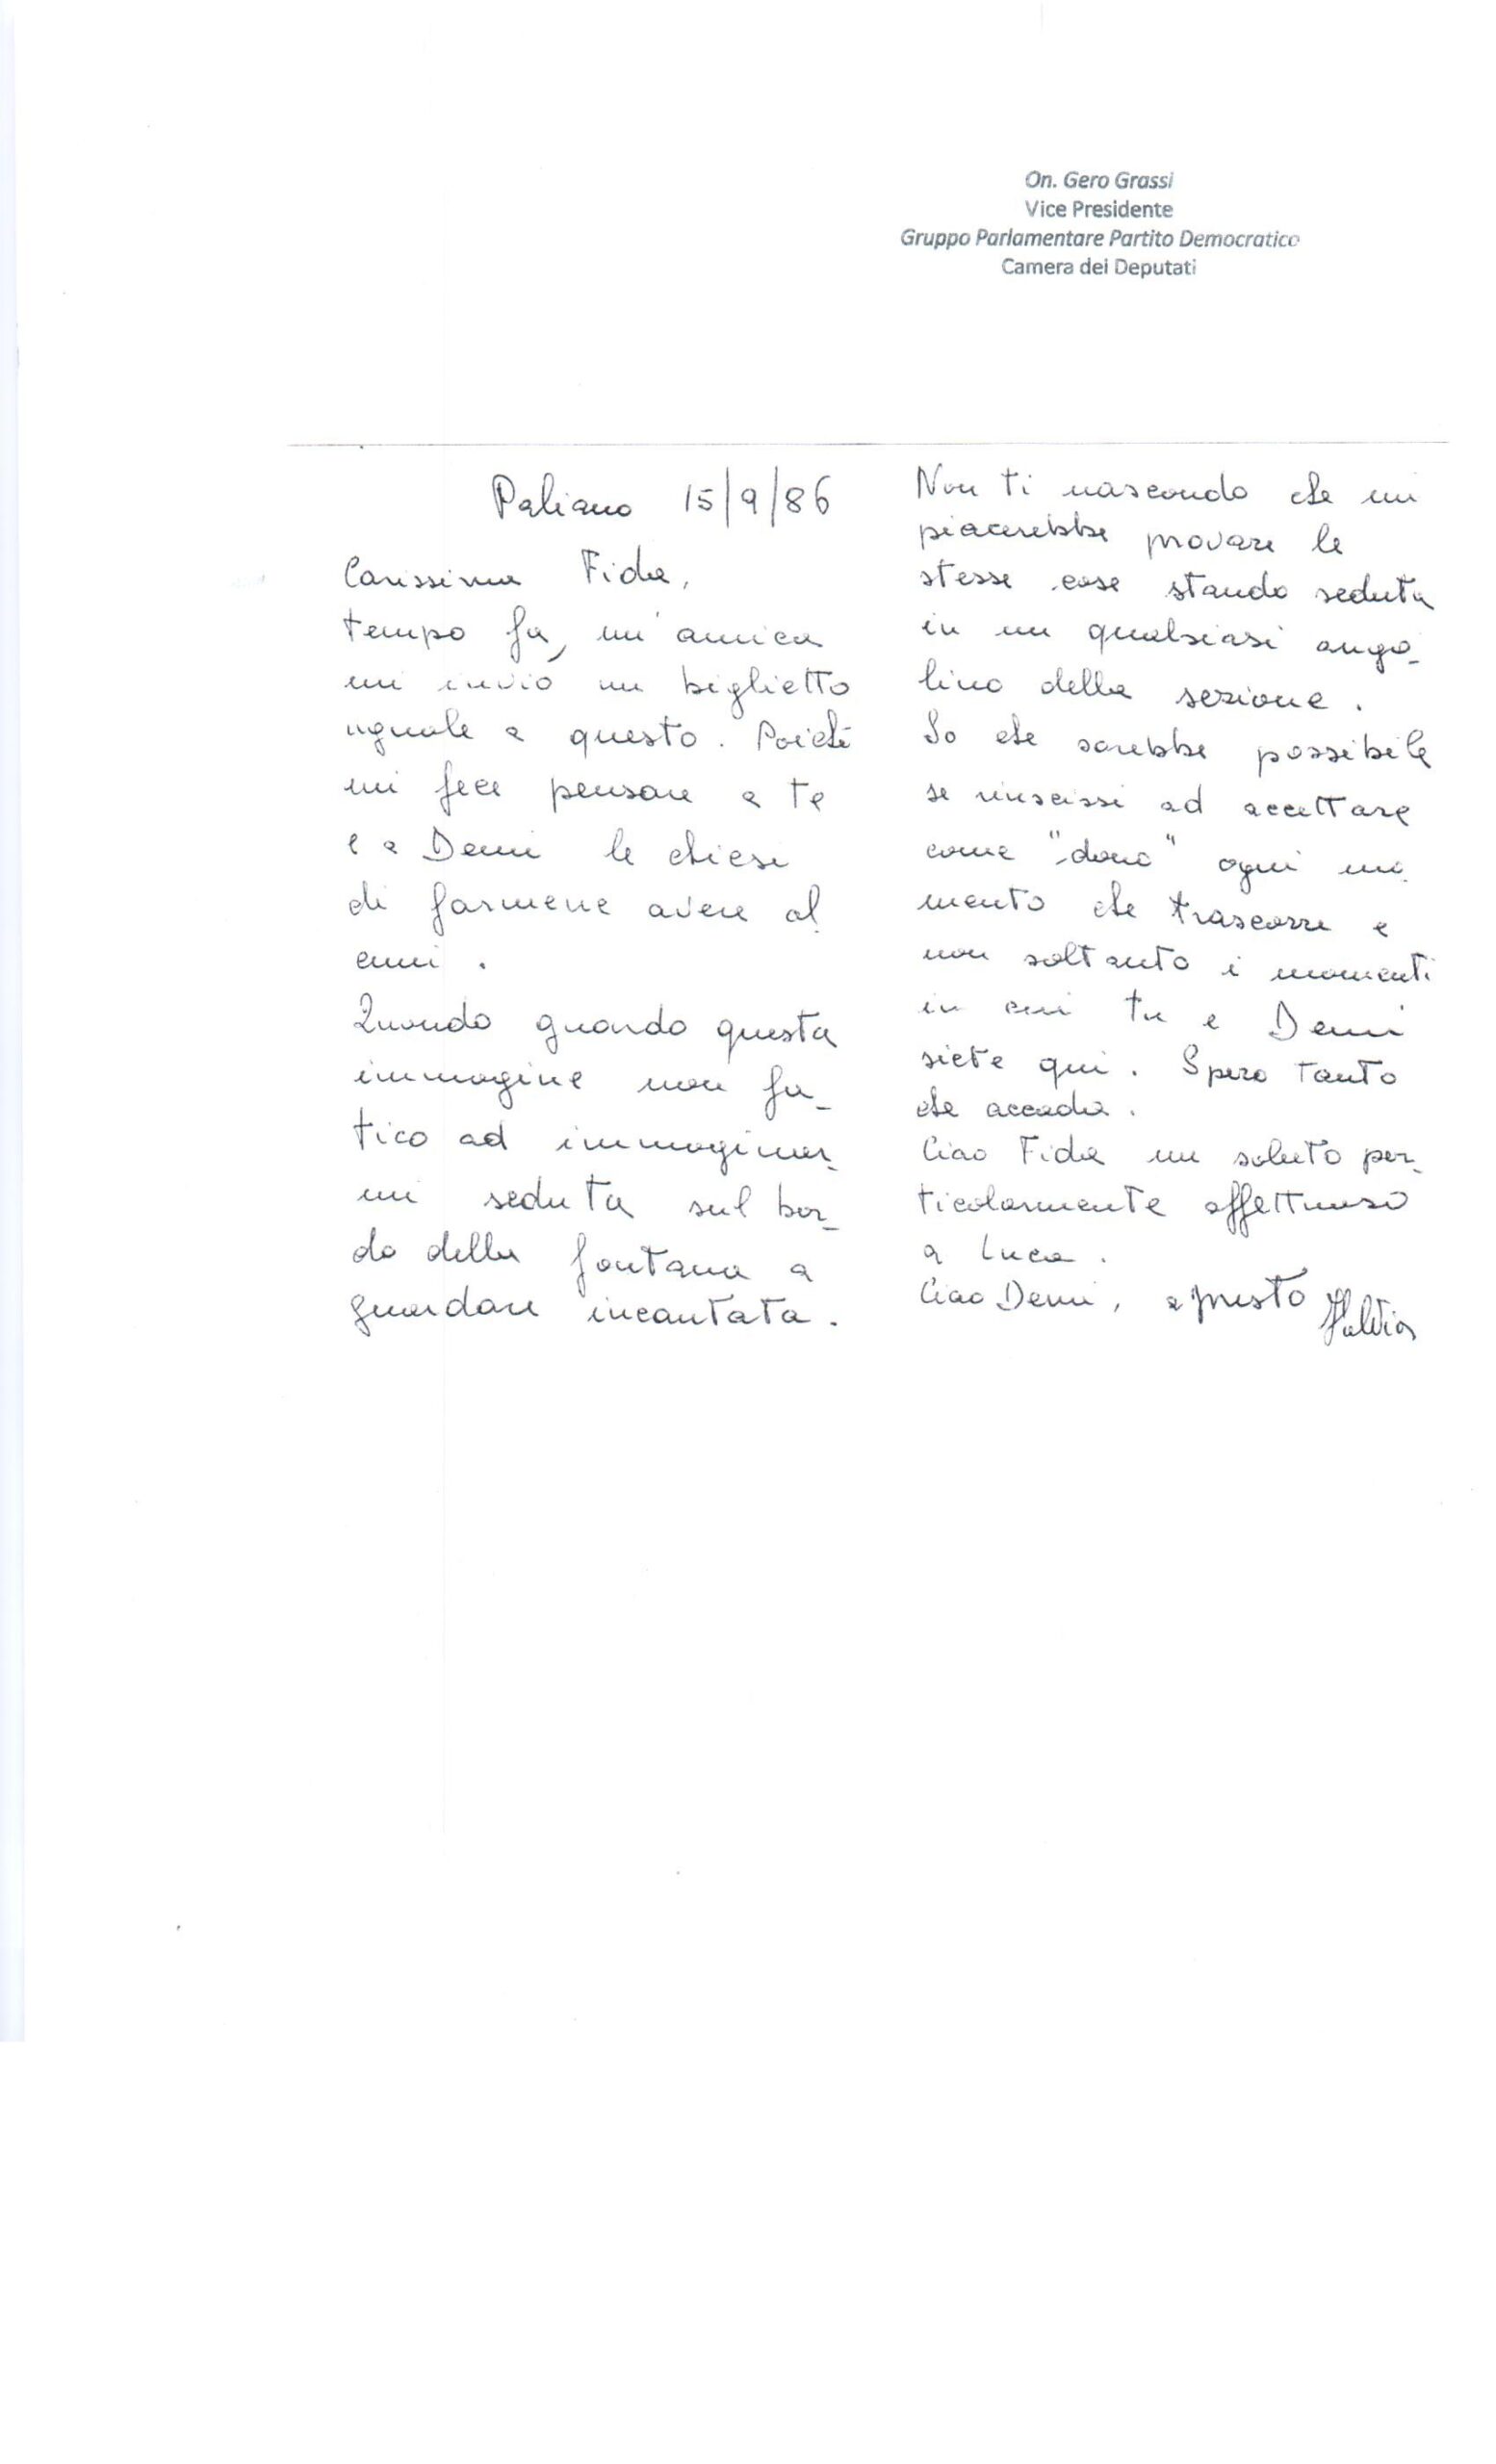 On. Gero Grassi
Vice Presidente
Gruppo Parlamentare Partito Democratico
Camera dei Deputati
Paliano 15/9/86
Carissima Fida,
tempo fa, un'amica
mi inviò un biglietto
uguale a questo. Poiché
mi fece pensare a te
e a Demi le chiesi
di farmene avere al
cuni.
Quando guardo questa
immagine non fa-
tico ad immaginar-
mi seduta sul bor-
do della fontana a
guardare incantata.
Non ti nascondo che mi
piacerebbe provare le
stesse cose stando seduta
in un qualsiasi ango-
lino della sezione.
So che sarebbe possibile
se riuscissi ad accettare
come "dono" ogni mo
mento che trascorre e
non soltanto i momenti
in cui tu e Demi
siete qui. Spero tanto
che accada.
Ciao Fida un saluto par-
ticolarmente affettuoso
a Luca.
Ciao Demi, a presto